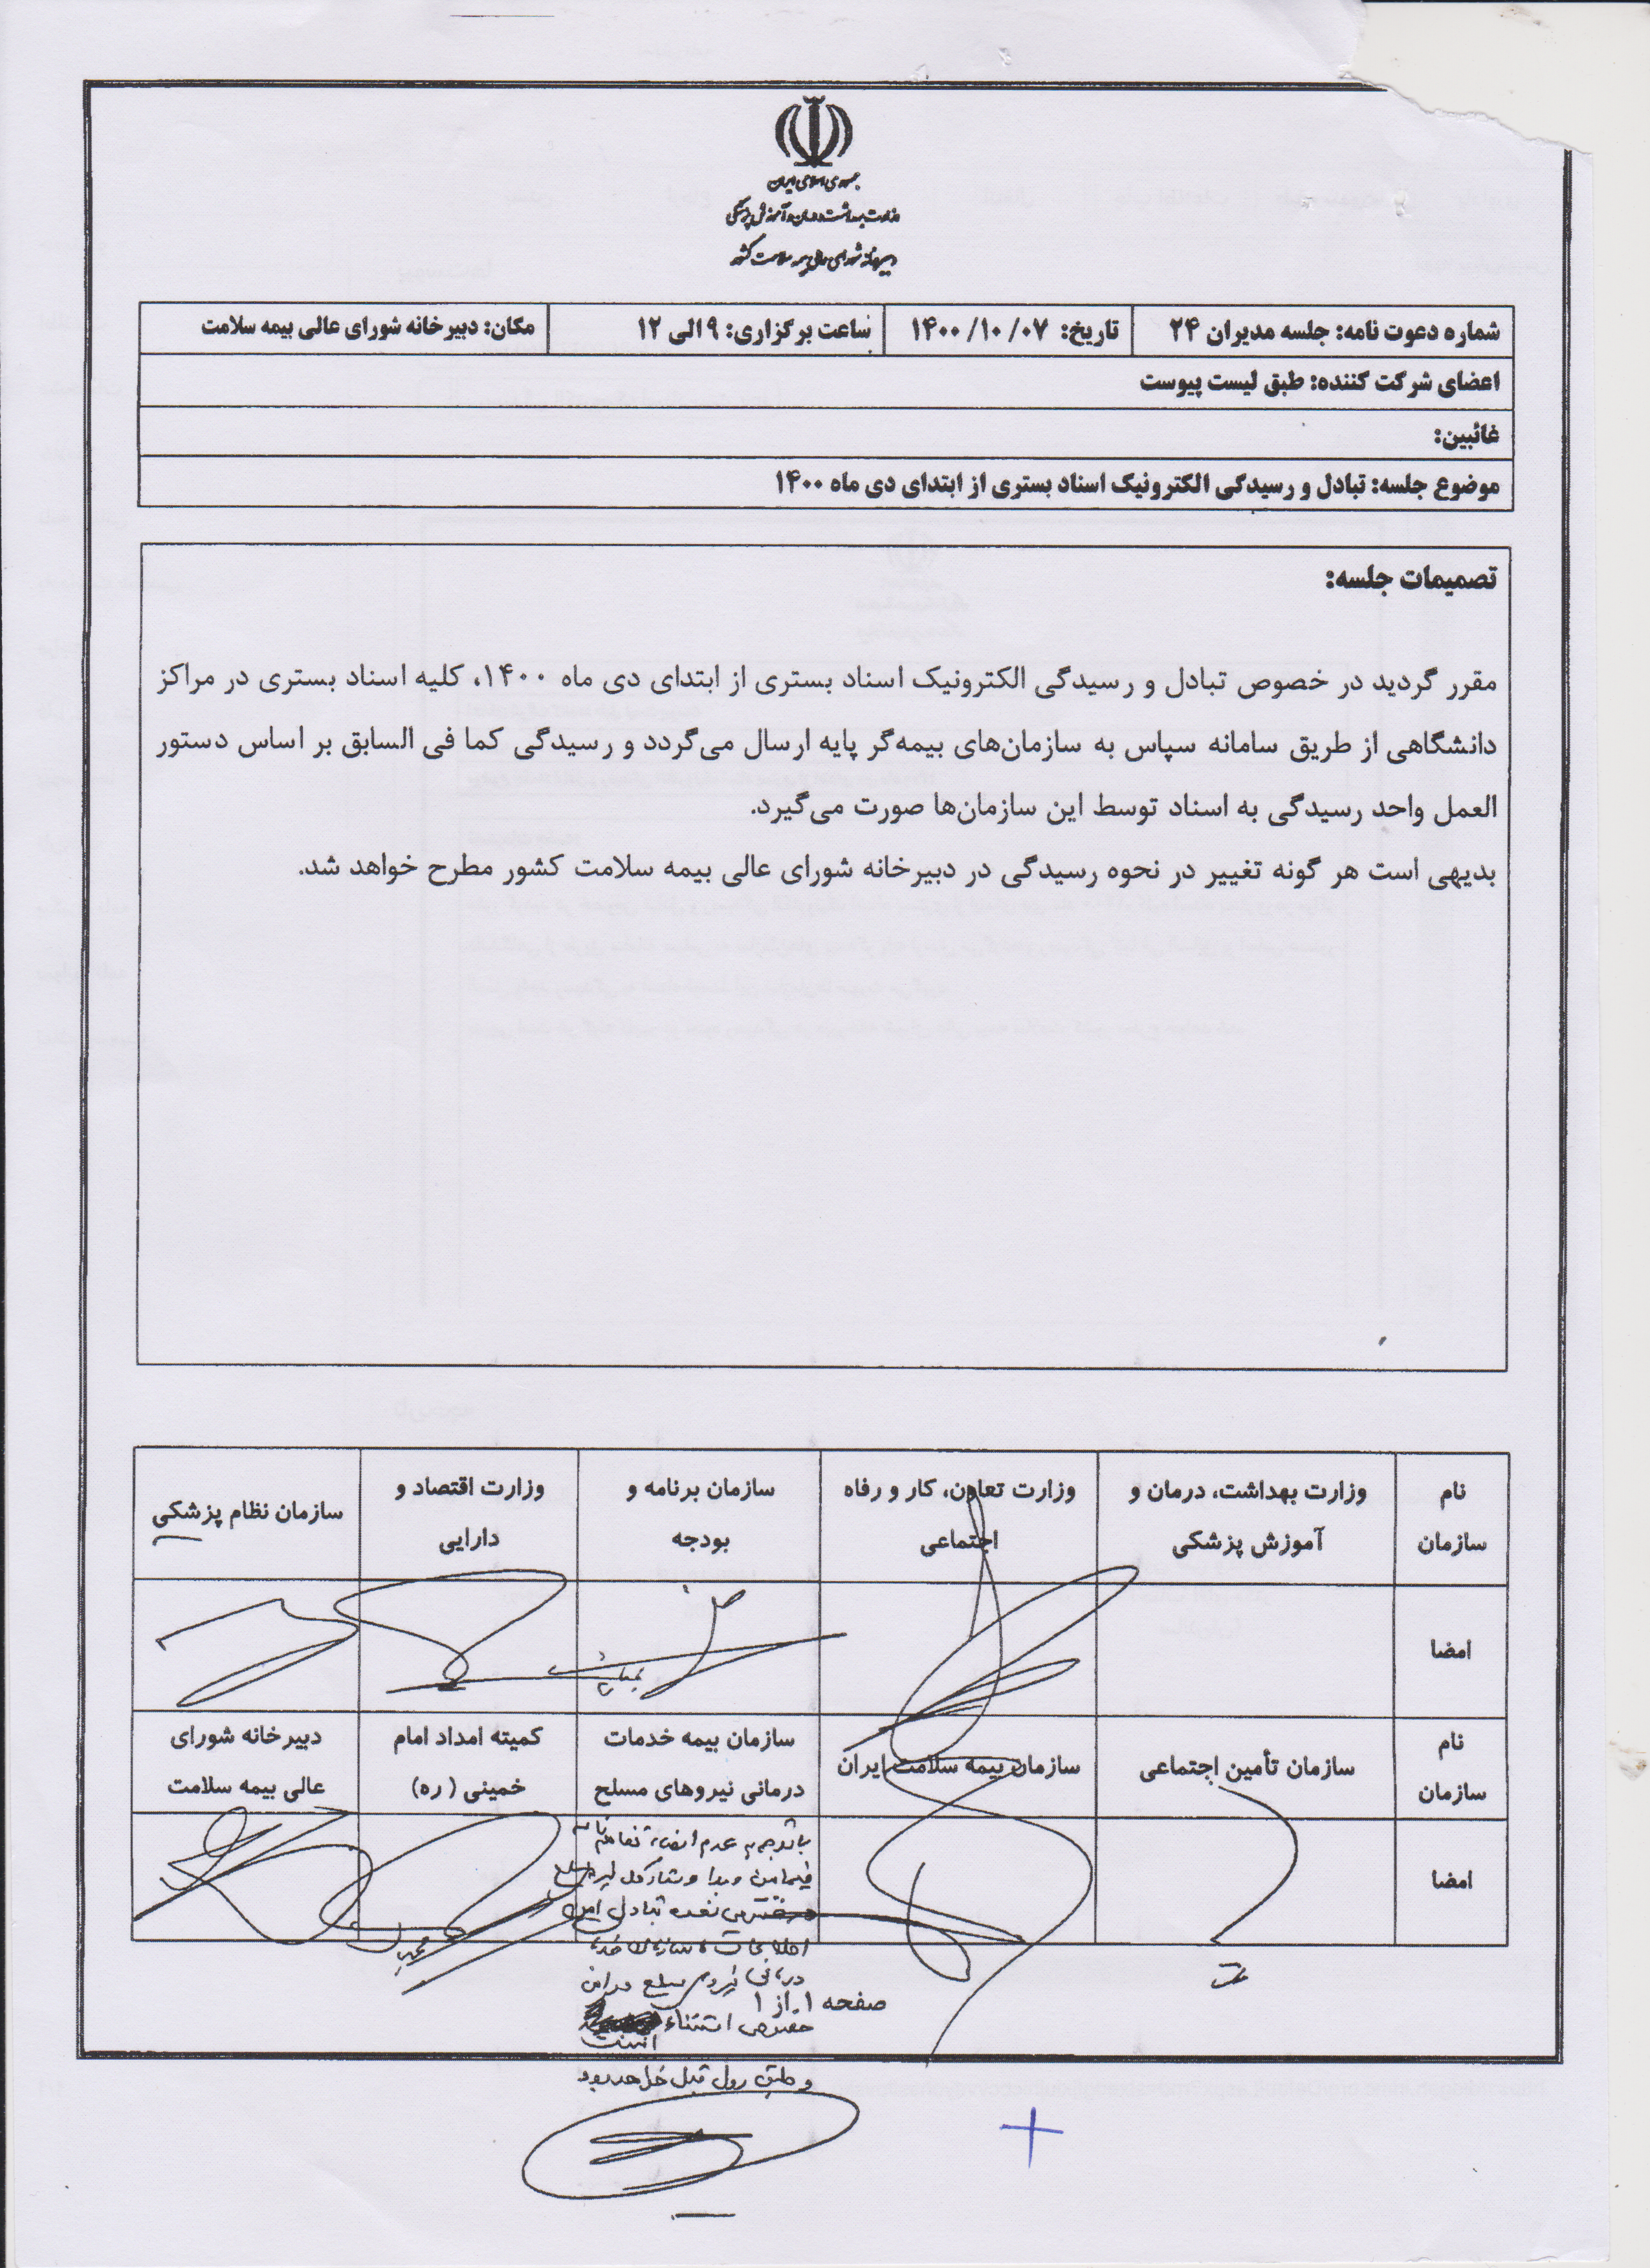 جمهوری اسلامی ایران
وزارت بهداشت، درمان و آموزش پزشکی
دبیرخانه شورای عالی بیمه سلامت کشور
شماره دعوت نامه: جلسه مدیران ۲۴ تاریخ: ۱۴۰۰/۱۰/۰۷ ساعت برگزاری: ۹ الی ۱۲ مکان: دبیرخانه شورای عالی بیمه سلامت
اعضای شرکت کننده: طبق لیست پیوست
غائبین:
موضوع جلسه: تبادل و رسیدگی الکترونیک اسناد بستری از ابتدای دی ماه ۱۴۰۰
تصمیمات جلسه:
مقرر گردید در خصوص تبادل و رسیدگی الکترونیک اسناد بستری از ابتدای دی ماه ۱۴۰۰، کلیه اسناد بستری در مراکز
دانشگاهی از طریق سامانه سپاس به سازمان‌های بیمه‌گر پایه ارسال می‌گردد و رسیدگی کما فی السابق بر اساس دستور
العمل واحد رسیدگی به اسناد توسط این سازمان‌ها صورت می‌گیرد.
بدیهی است هر گونه تغییر در نحوه رسیدگی در دبیرخانه شورای عالی بیمه سلامت کشور مطرح خواهد شد.
نام سازمان
وزارت بهداشت، درمان و آموزش پزشکی
وزارت تعاون، کار و رفاه اجتماعی
سازمان برنامه و بودجه
وزارت اقتصاد و دارایی
سازمان نظام پزشکی
امضا
نام سازمان
سازمان تأمین اجتماعی
سازمان بیمه سلامت ایران
سازمان بیمه خدمات درمانی نیروهای مسلح
کمیته امداد امام خمینی (ره)
دبیرخانه شورای عالی بیمه سلامت
امضا
با توجه به عدم امضاء تفاهم نامه
فیمابین
تبادل
اطلاعات
درمانی نیروی مسلح در این
خصوص استثناء
است
و طبق روال قبل خواهد بود
صفحه ۱ از ۱